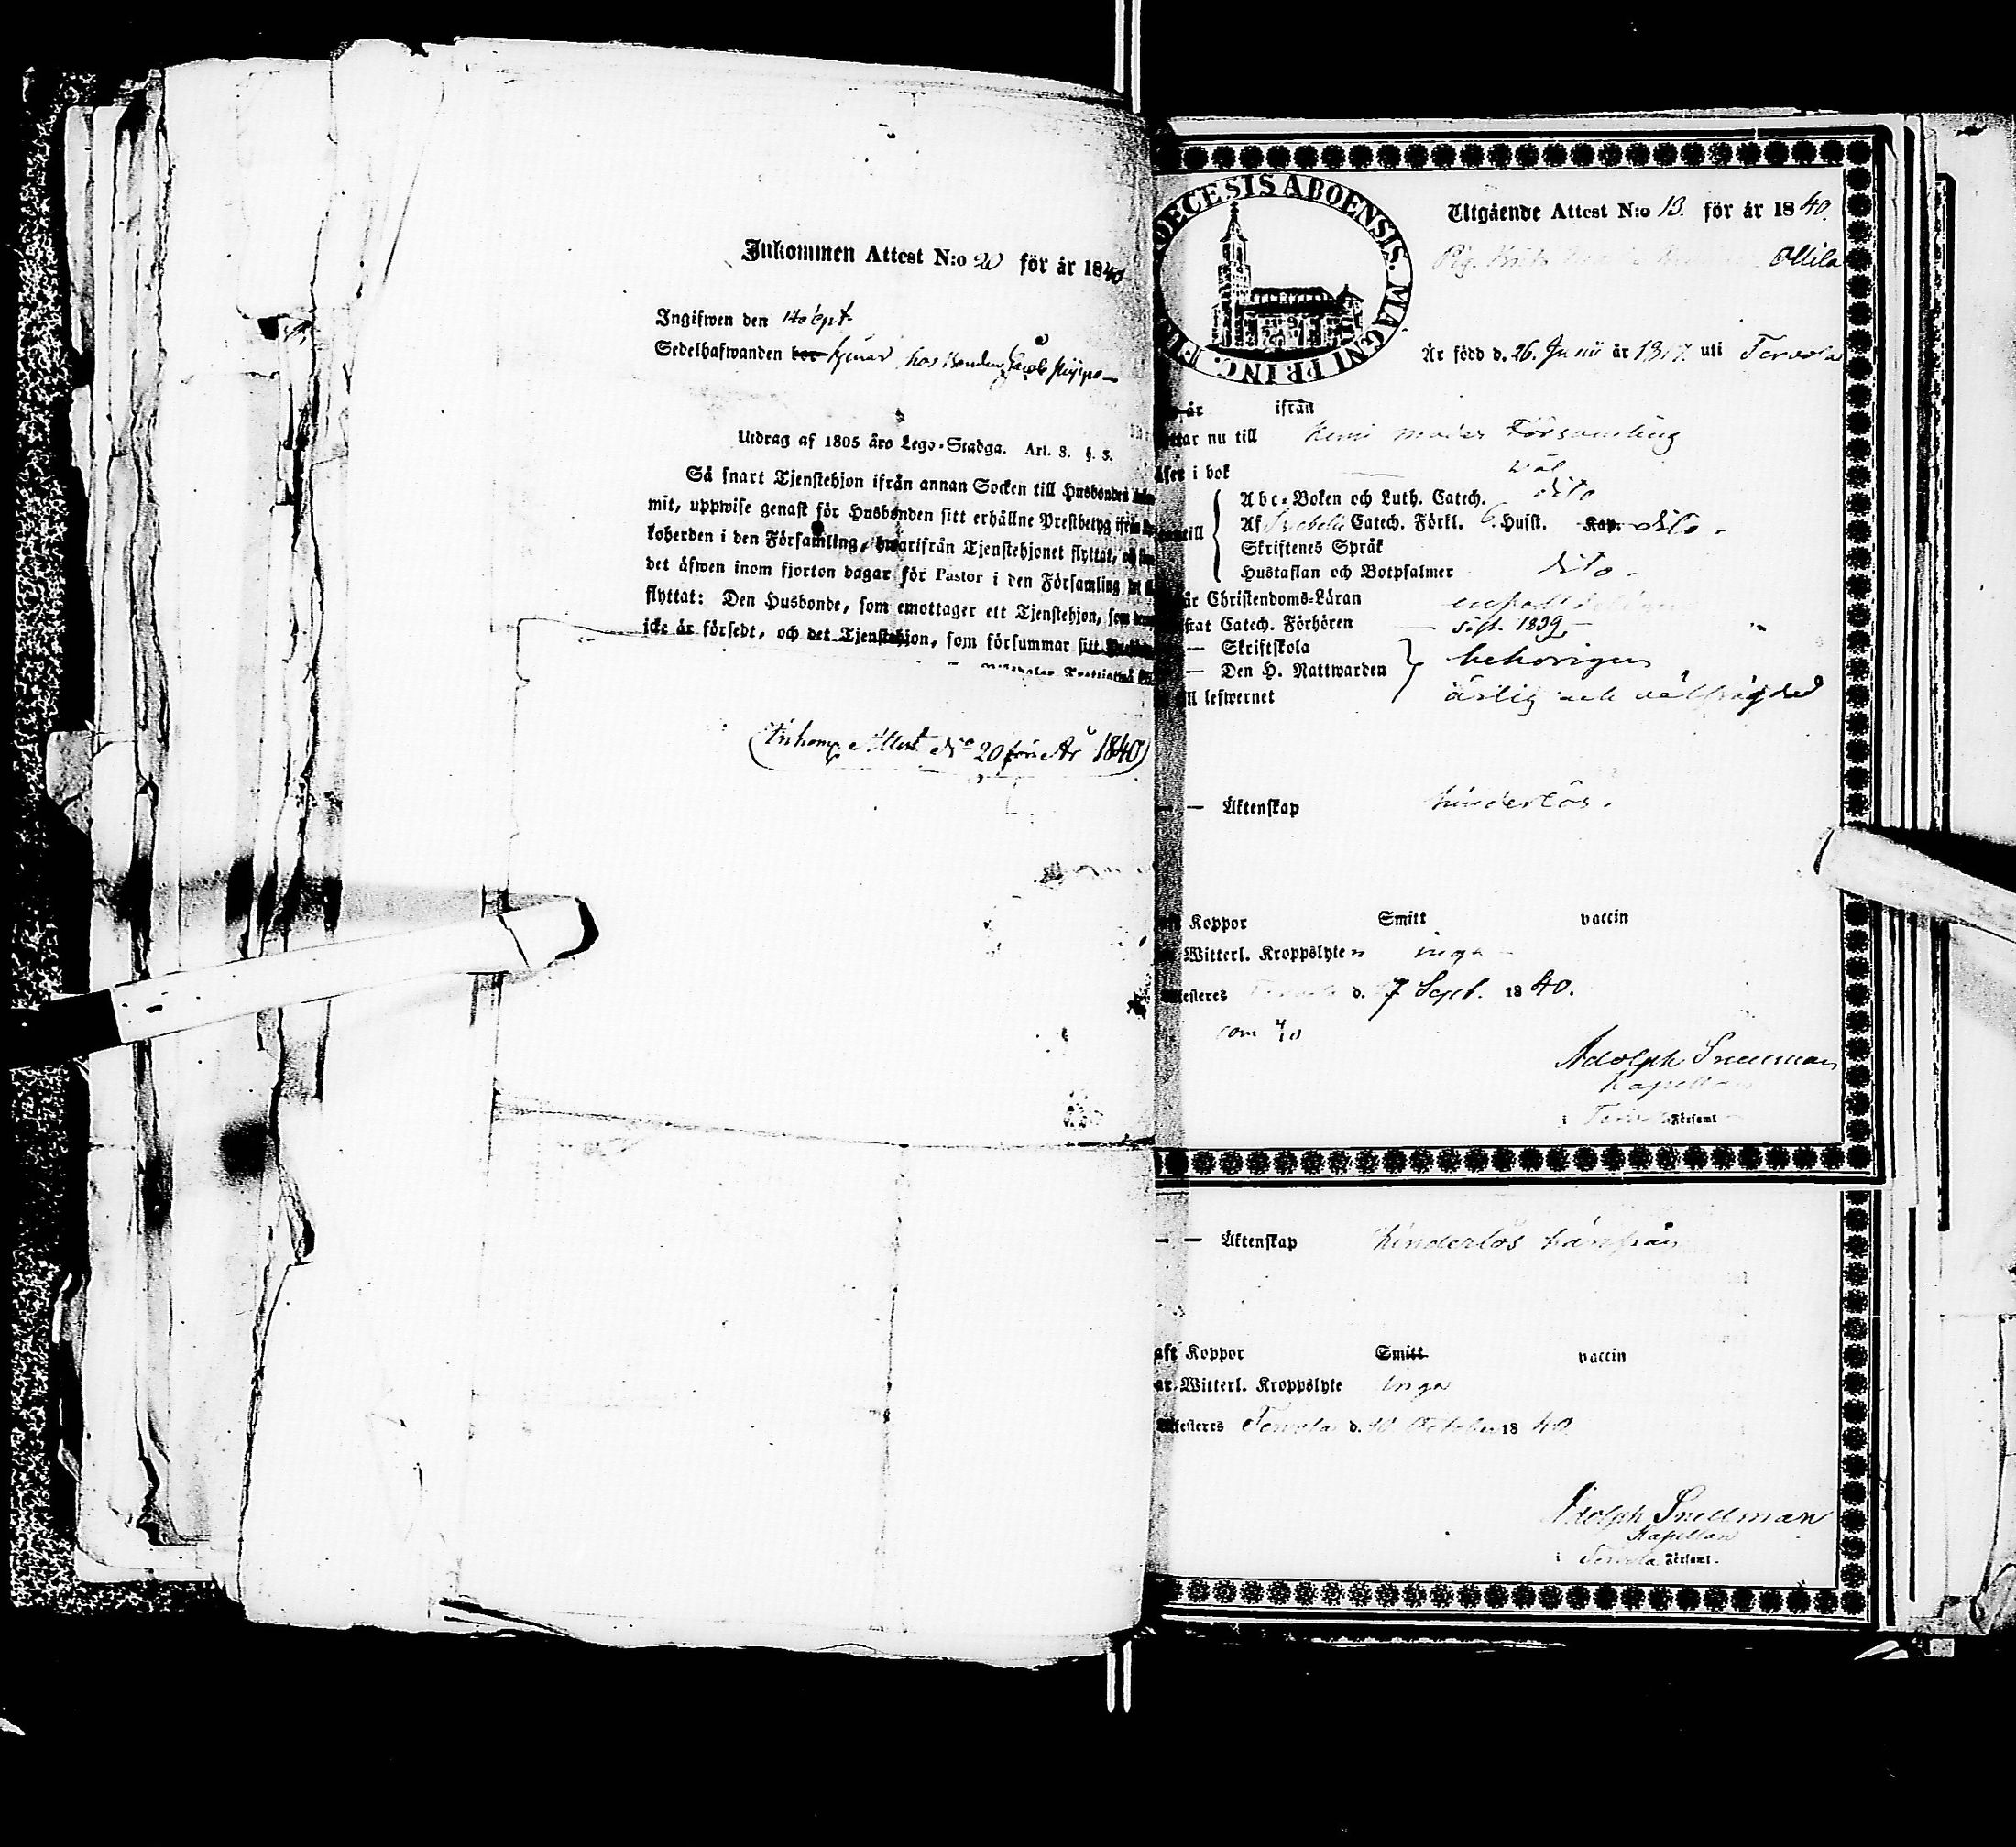 Inkommen Attest N:o 20 för år 1840
Ingifwen den Sept
Sedelhafwanden bor tjenar hos Bonden Jacob
Utdrag af 1805 års Lego-Stadga. Art. 8. §. 5.
Så snart Tjenstehjon ifrån annan Socken till Husbonden
mit, uppwise genast för Husbonden sitt erhållne Prestbetyg ifrån
koherden i den Församling, hwarifrån Tjenstehjonet flyttat, och
det äfwen inom fjorton dagar för Pastor i den Församling
flyttat: Den Husbonde, som emottager ett Tjenstehjon, som
icke är försedt, och det Tjenstehjon, som försummar sitt
Attest No 20 för År 1840
DIOECESIS ABOENSIS. MAGNI PRINC. F
Utgående Attest N:o 13. för år 1840.
Pig. Ollila
Är född d. 26. Junii år 1817. uti Tervola
år ifrån
nu till Kemi moder Församling
i bok väl
Abc-Boken och Luth. Catech. dito
Af Catech. Förkl. Hufst. Kap. dito.
Skriftenes Språk
Hustaflan och Botpsalmer dito.
Christendoms-Läran
Catech. Förhören sist. 1839.
— Skriftskola
— Den H. Nattwarden behörigen
lefwernet ärlig och välfrägdad
— — Äktenskap hinderlös.
Koppor Smitt vaccin
Witterl. Kroppslyten inga
d. 7 Sept. 1840.
Adolph Snellman
Kapellan
i Tervola Församl
— — Äktenskap hinderlös härifrån
Koppor Smitt vaccin
Witterl. Kroppslyte Inga
Tervola d. 10 October 1840.
Adolph Snellman
Kapellan
i Tervola Församl.